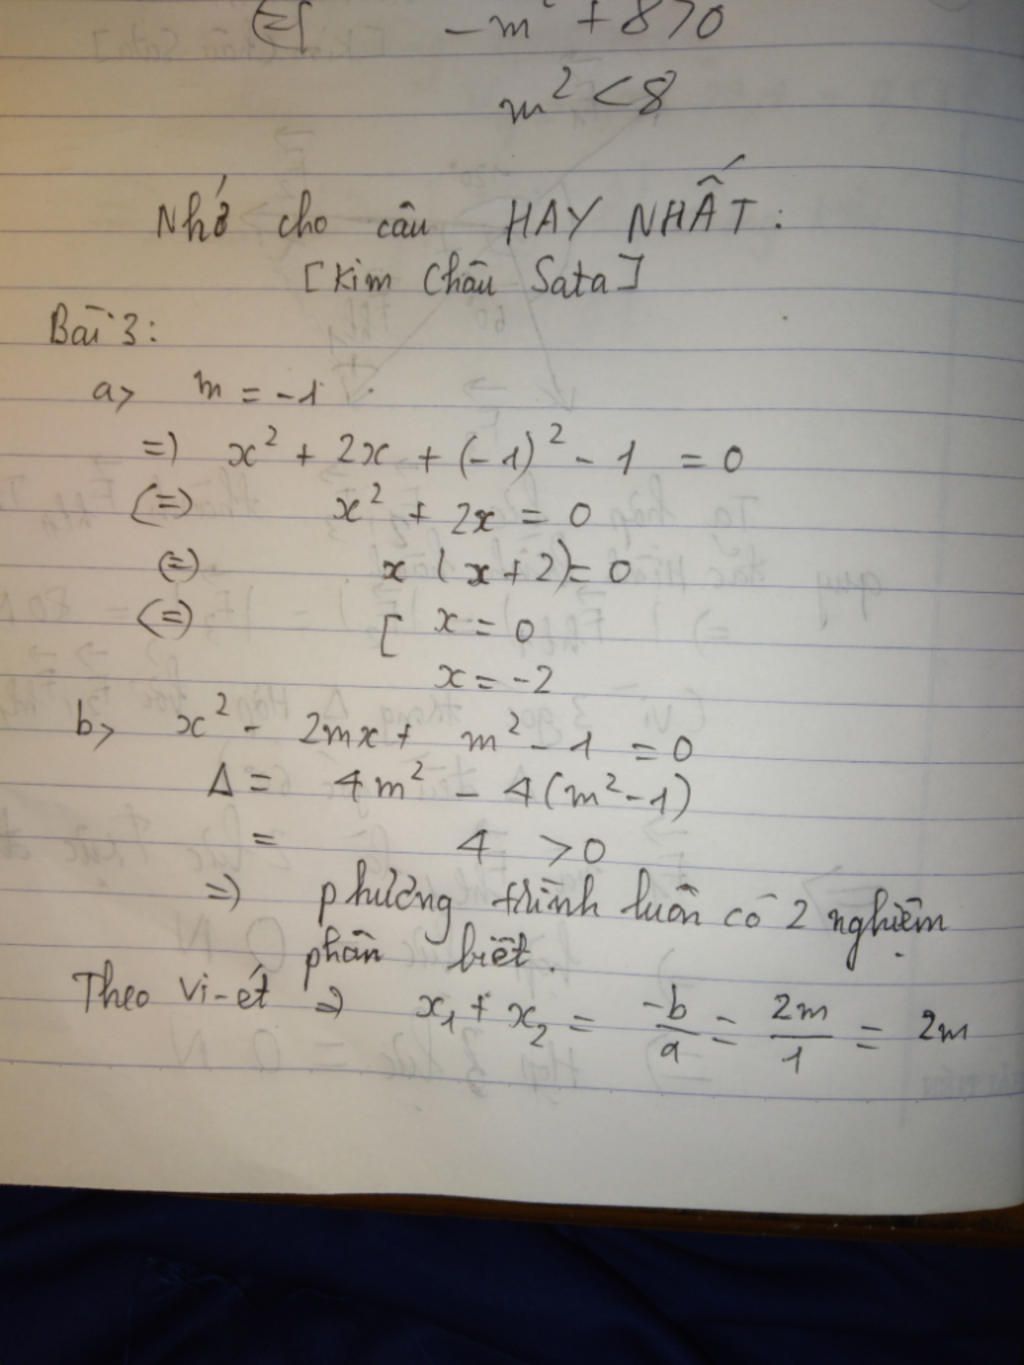 (=) -m² + 8 > 0
m² < 8
Nhớ cho câu HAY NHẤT:
[Kim Châu Sata]
Bài 3:
a> m = -1
=) x² + 2x + (-1)² - 1 = 0
(=) x² + 2x = 0
(=) x (x+2) = 0
(=) [ x = 0
x = -2
b> x² - 2mx + m² - 1 = 0
Δ = 4m² - 4(m² - 1)
= 4 > 0
=) phương trình luôn có 2 nghiệm
phân biệt.
Theo vi-ét => x₁ + x₂ = -b/a = 2m/1 = 2m